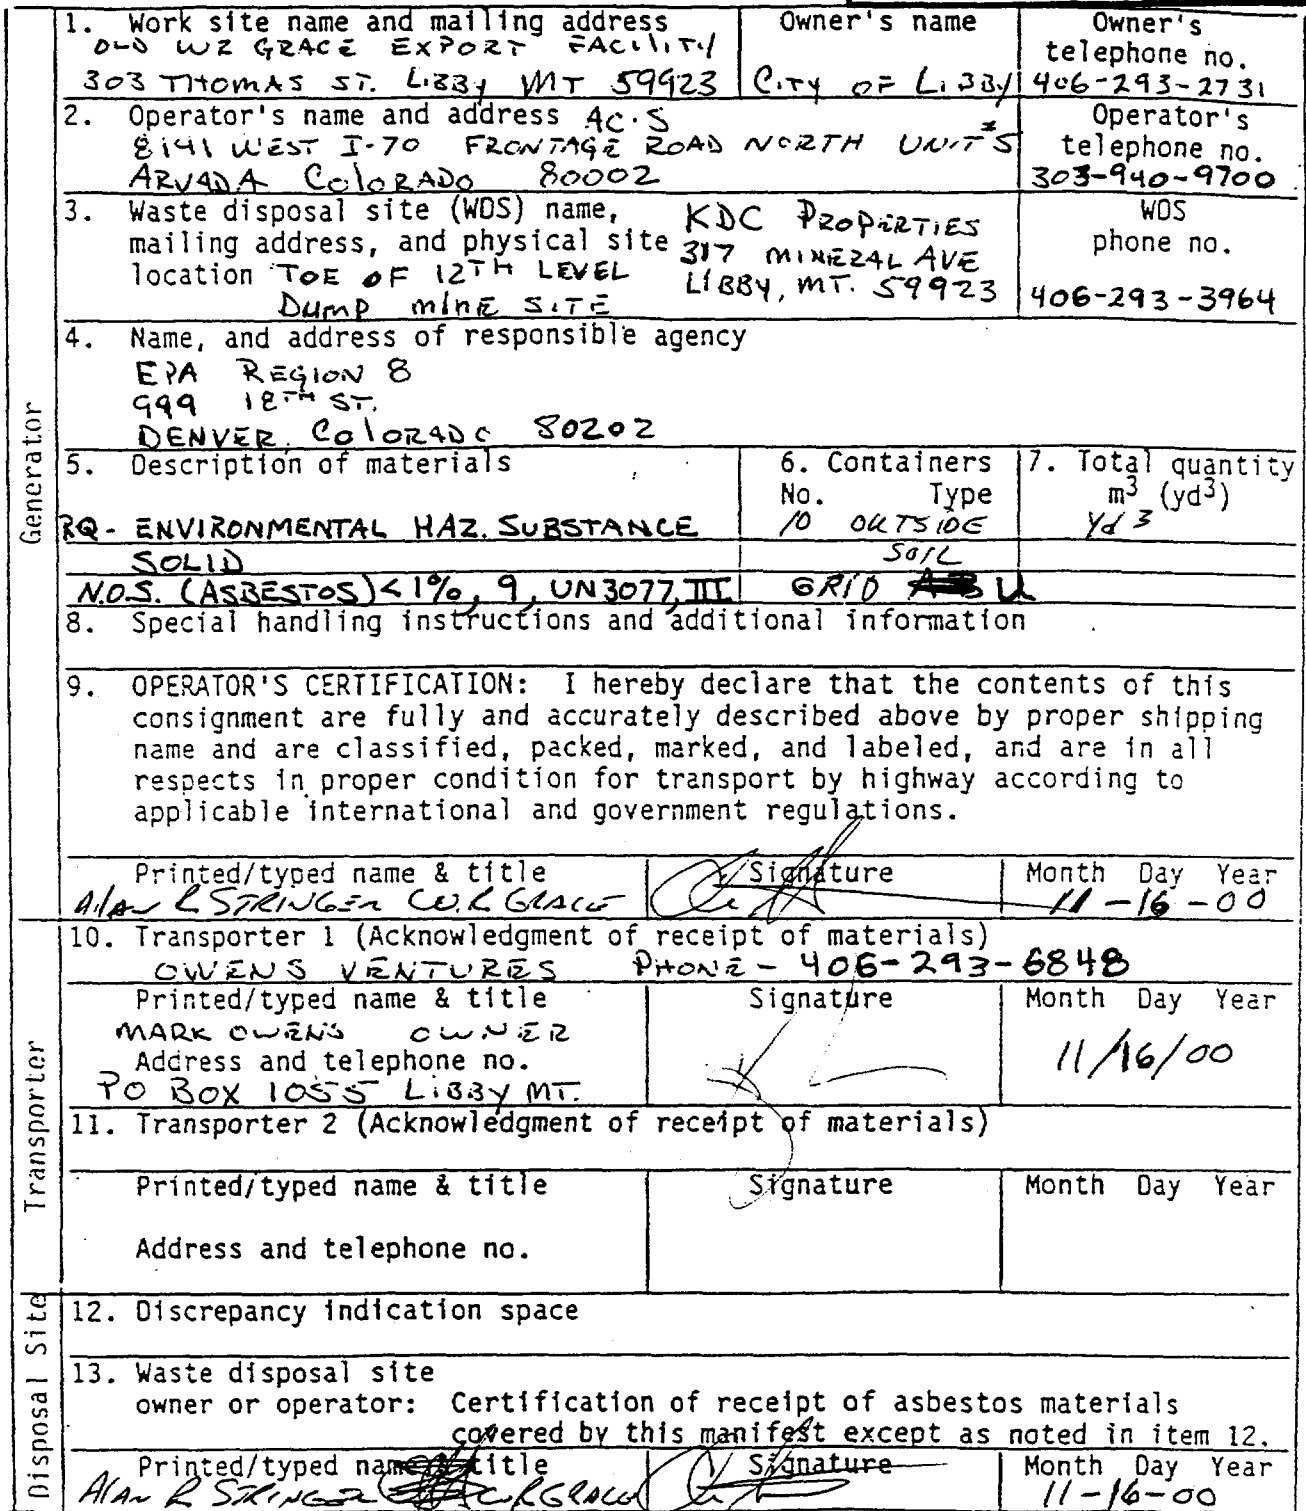 1. Work site name and mailing address
OLD WR GRACE EXPORT FACILITY
303 THOMAS ST. LIBBY MT 59923
Owner's name
CITY OF LIBBY
Owner's
telephone no.
406-293-2731
2. Operator's name and address AC.S
8141 WEST I-70 FRONTAGE ROAD NORTH UNIT #5
ARVADA COLORADO 80002
Operator's
telephone no.
303-940-9700
3. Waste disposal site (WDS) name,
mailing address, and physical site
location TOE OF 12TH LEVEL
DUMP MINE SITE
KDC PROPERTIES
317 MINERAL AVE
LIBBY, MT. 59923
WDS
phone no.
406-293-3964
4. Name, and address of responsible agency
EPA REGION 8
999 18TH ST.
DENVER, COLORADO 80202
5. Description of materials
RQ - ENVIRONMENTAL HAZ. SUBSTANCE
SOLID
N.O.S. (ASBESTOS) <1%, 9, UN3077, III
6. Containers
No. Type
10 OUTSIDE
SOIL
GRID U
7. Total quantity
m3 (yd3)
Yd3
8. Special handling instructions and additional information
9. OPERATOR'S CERTIFICATION: I hereby declare that the contents of this
consignment are fully and accurately described above by proper shipping
name and are classified, packed, marked, and labeled, and are in all
respects in proper condition for transport by highway according to
applicable international and government regulations.
Printed/typed name & title
Alan R STRINGER W.R. GRACE
Signature
Month Day Year
11-16-00
10. Transporter 1 (Acknowledgment of receipt of materials)
OWENS VENTURES PHONE - 406-293-6848
Printed/typed name & title
MARK OWENS OWNER
Address and telephone no.
PO BOX 1055 LIBBY MT.
Signature
Month Day Year
11/16/00
11. Transporter 2 (Acknowledgment of receipt of materials)
Printed/typed name & title
Address and telephone no.
Signature
Month Day Year
12. Discrepancy indication space
13. Waste disposal site
owner or operator: Certification of receipt of asbestos materials
covered by this manifest except as noted in item 12.
Printed/typed name & title
Alan R STRINGER W.R. GRACE
Signature
Month Day Year
11-16-00
Generator
Transporter
Disposal Site